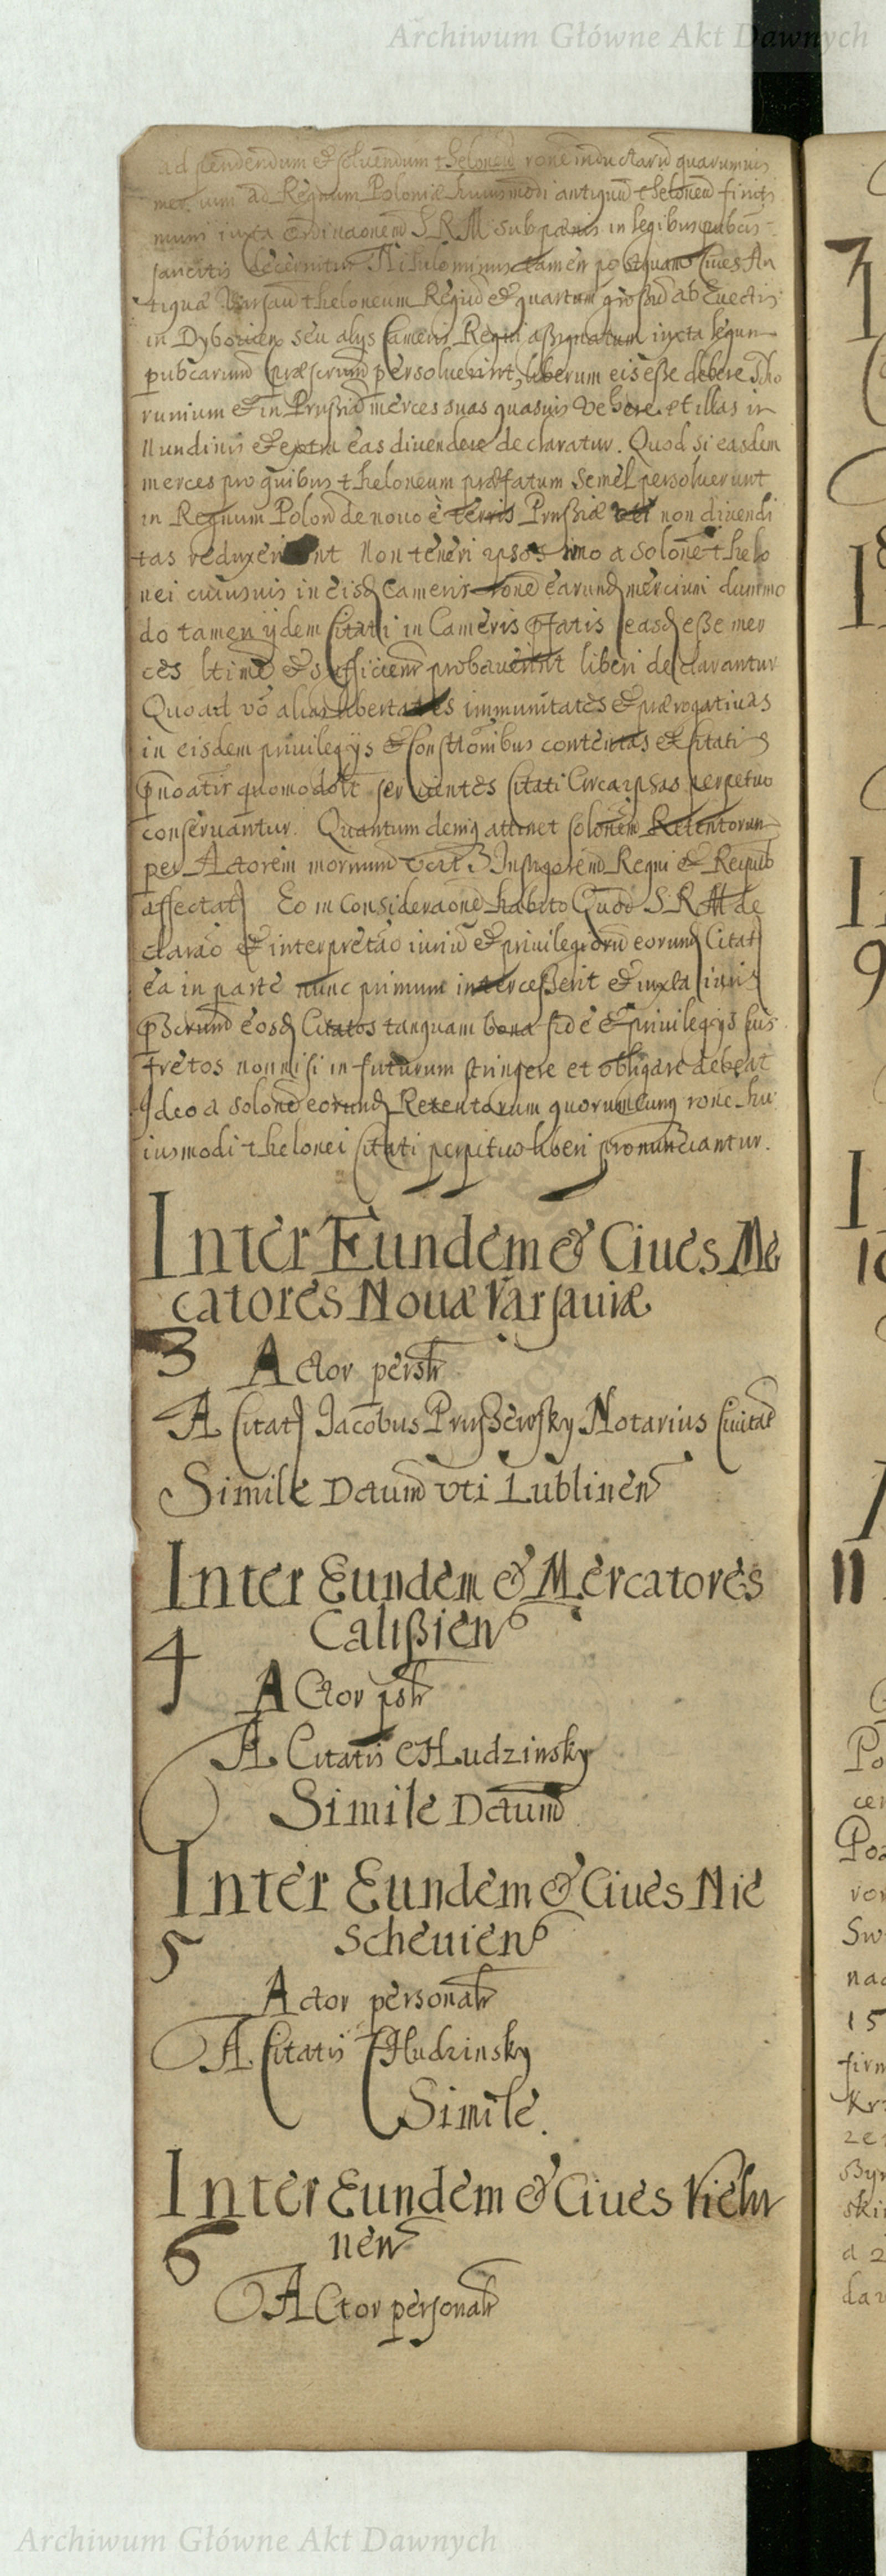 Archiwum Główne Akt Dawnych
ad pendendum & soluendum theloneū rone inductarū quarumuis
ad Regnum Poloniæ huiusmodi antiquū theloneū finitis
iuxta Ordinaonem S R M sub pœnis in legibus pubcis
sancitis decernitur Nihilominus tamen postquam Ciues An
tiquæ Varsauiæ theloneum Regiū & quartum grossū ab Euectis
in Dybouien seu alys Cameris Regni assignatum iuxta legum
pubcarum præscrum persoluerint, liberum eis esse debere Tho
runium & in Prussiā merces suas quasuis Vehere et illas in
Nundinis & extra eas diuendere declaratur. Quod si easdem
merces pro quibus theloneum præfatum Semel persoluerunt
in Regnum Polon de nouo è terris Prussiæ non diuendi
tas reduxerint Non teneri ipsos imo a solone thelo
nei cuiusuis in eisd Cameris rone earund mercium dummo
do tamen ijdem Citati in Cameris pfatis easd esse mer
ces ltime & sufficienr probauerint liberi declarantur
Quoad vo alias libertates immunitates & prærogatiuas
in eisdem priuilegijs & Constonibus contentas et Citatis
quomodolt seruientes Citati Circa ipsas perpetuo
conseruantur. Quantum deniq attinet solonem Retentorum
per Actorem Instigorem Regni & Reipub
affectat Eo in Consideraone habito Quod S R M de
clarao & interpretao iuriū & priuilegiorū eorund Citat
ea in parte nunc primum intercesserit & iuxta iuris
pscrum eosd Citatos tanquam bona fide & priuilegijs suis
fretos non nisi in futurum stringere et obligare debeat
Ideo a solone eorund Retentorum quorumcunq rone hu
iusmodi thelonei Citati perpetuo liberi pronunciantur.
Inter Eundem & Ciues Me
catores Nouæ Varsauiæ
3 Actor perslr
A Citat Jacobus Prussewsky Notarius Ciuitat
Simile Dctum vti Lublinen
Inter Eundem & Mercatores
Calissien
4
Actor pslr
A Citatis CHudzinsky
Simile Dctum
Inter Eundem & Ciues Nie
scheuien
5
Actor personalr
A Citatis CHudzinsky
Simile.
Inter Eundem & Ciues Vielu
nen
6
Actor personalr
7
I
8
I
9
I
10
11
Po
cer
Poz
vor
Sw
nac
15
firm
Krz
zer
Byr
skie
a 2
da
Archiwum Główne Akt Dawnych